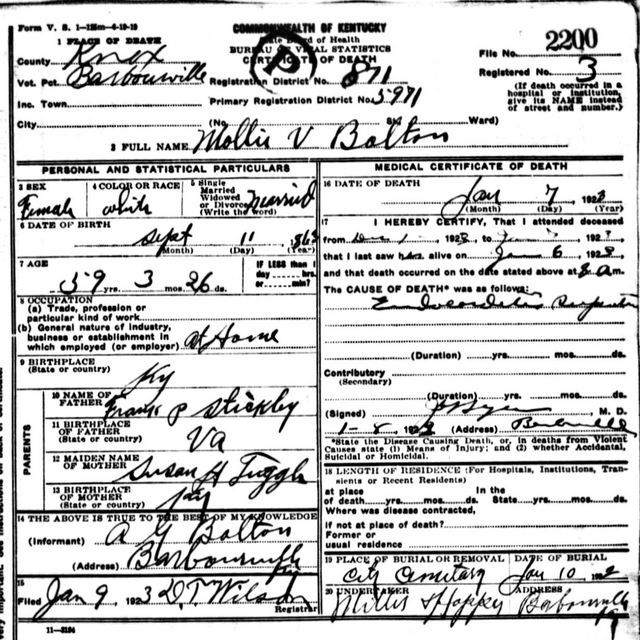 Form V. S. 1-125m-4-19-19
COMMONWEALTH OF KENTUCKY
State Board of Health
BUREAU OF VITAL STATISTICS
CERTIFICATE OF DEATH
P
2200
File No.
Registered No. 3
(If death occurred in a hospital or institution, give its NAME instead of street and number.)
1 PLACE OF DEATH
County Knox
Vot. Pct. Barbourville
Registration District No. 871
Inc. Town
Primary Registration District No. 5971
City (No. St. Ward)
2 FULL NAME Mollie V Bolton
PERSONAL AND STATISTICAL PARTICULARS
3 SEX Female
4 COLOR OR RACE white
5 Single Married Widowed or Divorced (Write the word) Married
6 DATE OF BIRTH
Sept 11
(Month) (Day) (Year)
7 AGE
59 yrs. 3 mos. 26 ds.
IF LESS than 1 day hrs. or min?
8 OCCUPATION
(a) Trade, profession or particular kind of work
(b) General nature of industry, business or establishment in which employed (or employer) at Home
9 BIRTHPLACE
(State or country) Ky
PARENTS
10 NAME OF FATHER Frank P Stickley
11 BIRTHPLACE OF FATHER
(State or country) Va
12 MAIDEN NAME OF MOTHER Susan H Tuggle
13 BIRTHPLACE OF MOTHER
(State or country)
14 THE ABOVE IS TRUE TO THE BEST OF MY KNOWLEDGE
(Informant) A G Bolton
(Address) Barbourville Ky
15
Filed Jan 9 1923 D. T. Wilson
Registrar
11-3184
MEDICAL CERTIFICATE OF DEATH
16 DATE OF DEATH
Jan 7, 1923
(Month) (Day) (Year)
17 I HEREBY CERTIFY, That I attended deceased
from
that I last saw alive on Jan 6
and that death occurred on the date stated above at 8 a m.
The CAUSE OF DEATH* was as follows:
Endocarditis
(Duration) yrs. mos. ds.
Contributory
(Secondary)
(Duration) yrs. mos. ds.
(Signed) M. D.
1-8 (Address) Barbourville
*State the Disease Causing Death, or, in deaths from Violent Causes state (1) Means of Injury; and (2) whether Accidental, Suicidal or Homicidal.
18 LENGTH OF RESIDENCE (For Hospitals, Institutions, Transients or Recent Residents)
at place of death yrs. mos. ds. In the State yrs. mos. ds.
Where was disease contracted,
if not at place of death?
Former or usual residence
19 PLACE OF BURIAL OR REMOVAL City Cemetary
DATE OF BURIAL Jan 10
20 UNDERTAKER
ADDRESS Barbourville Ky